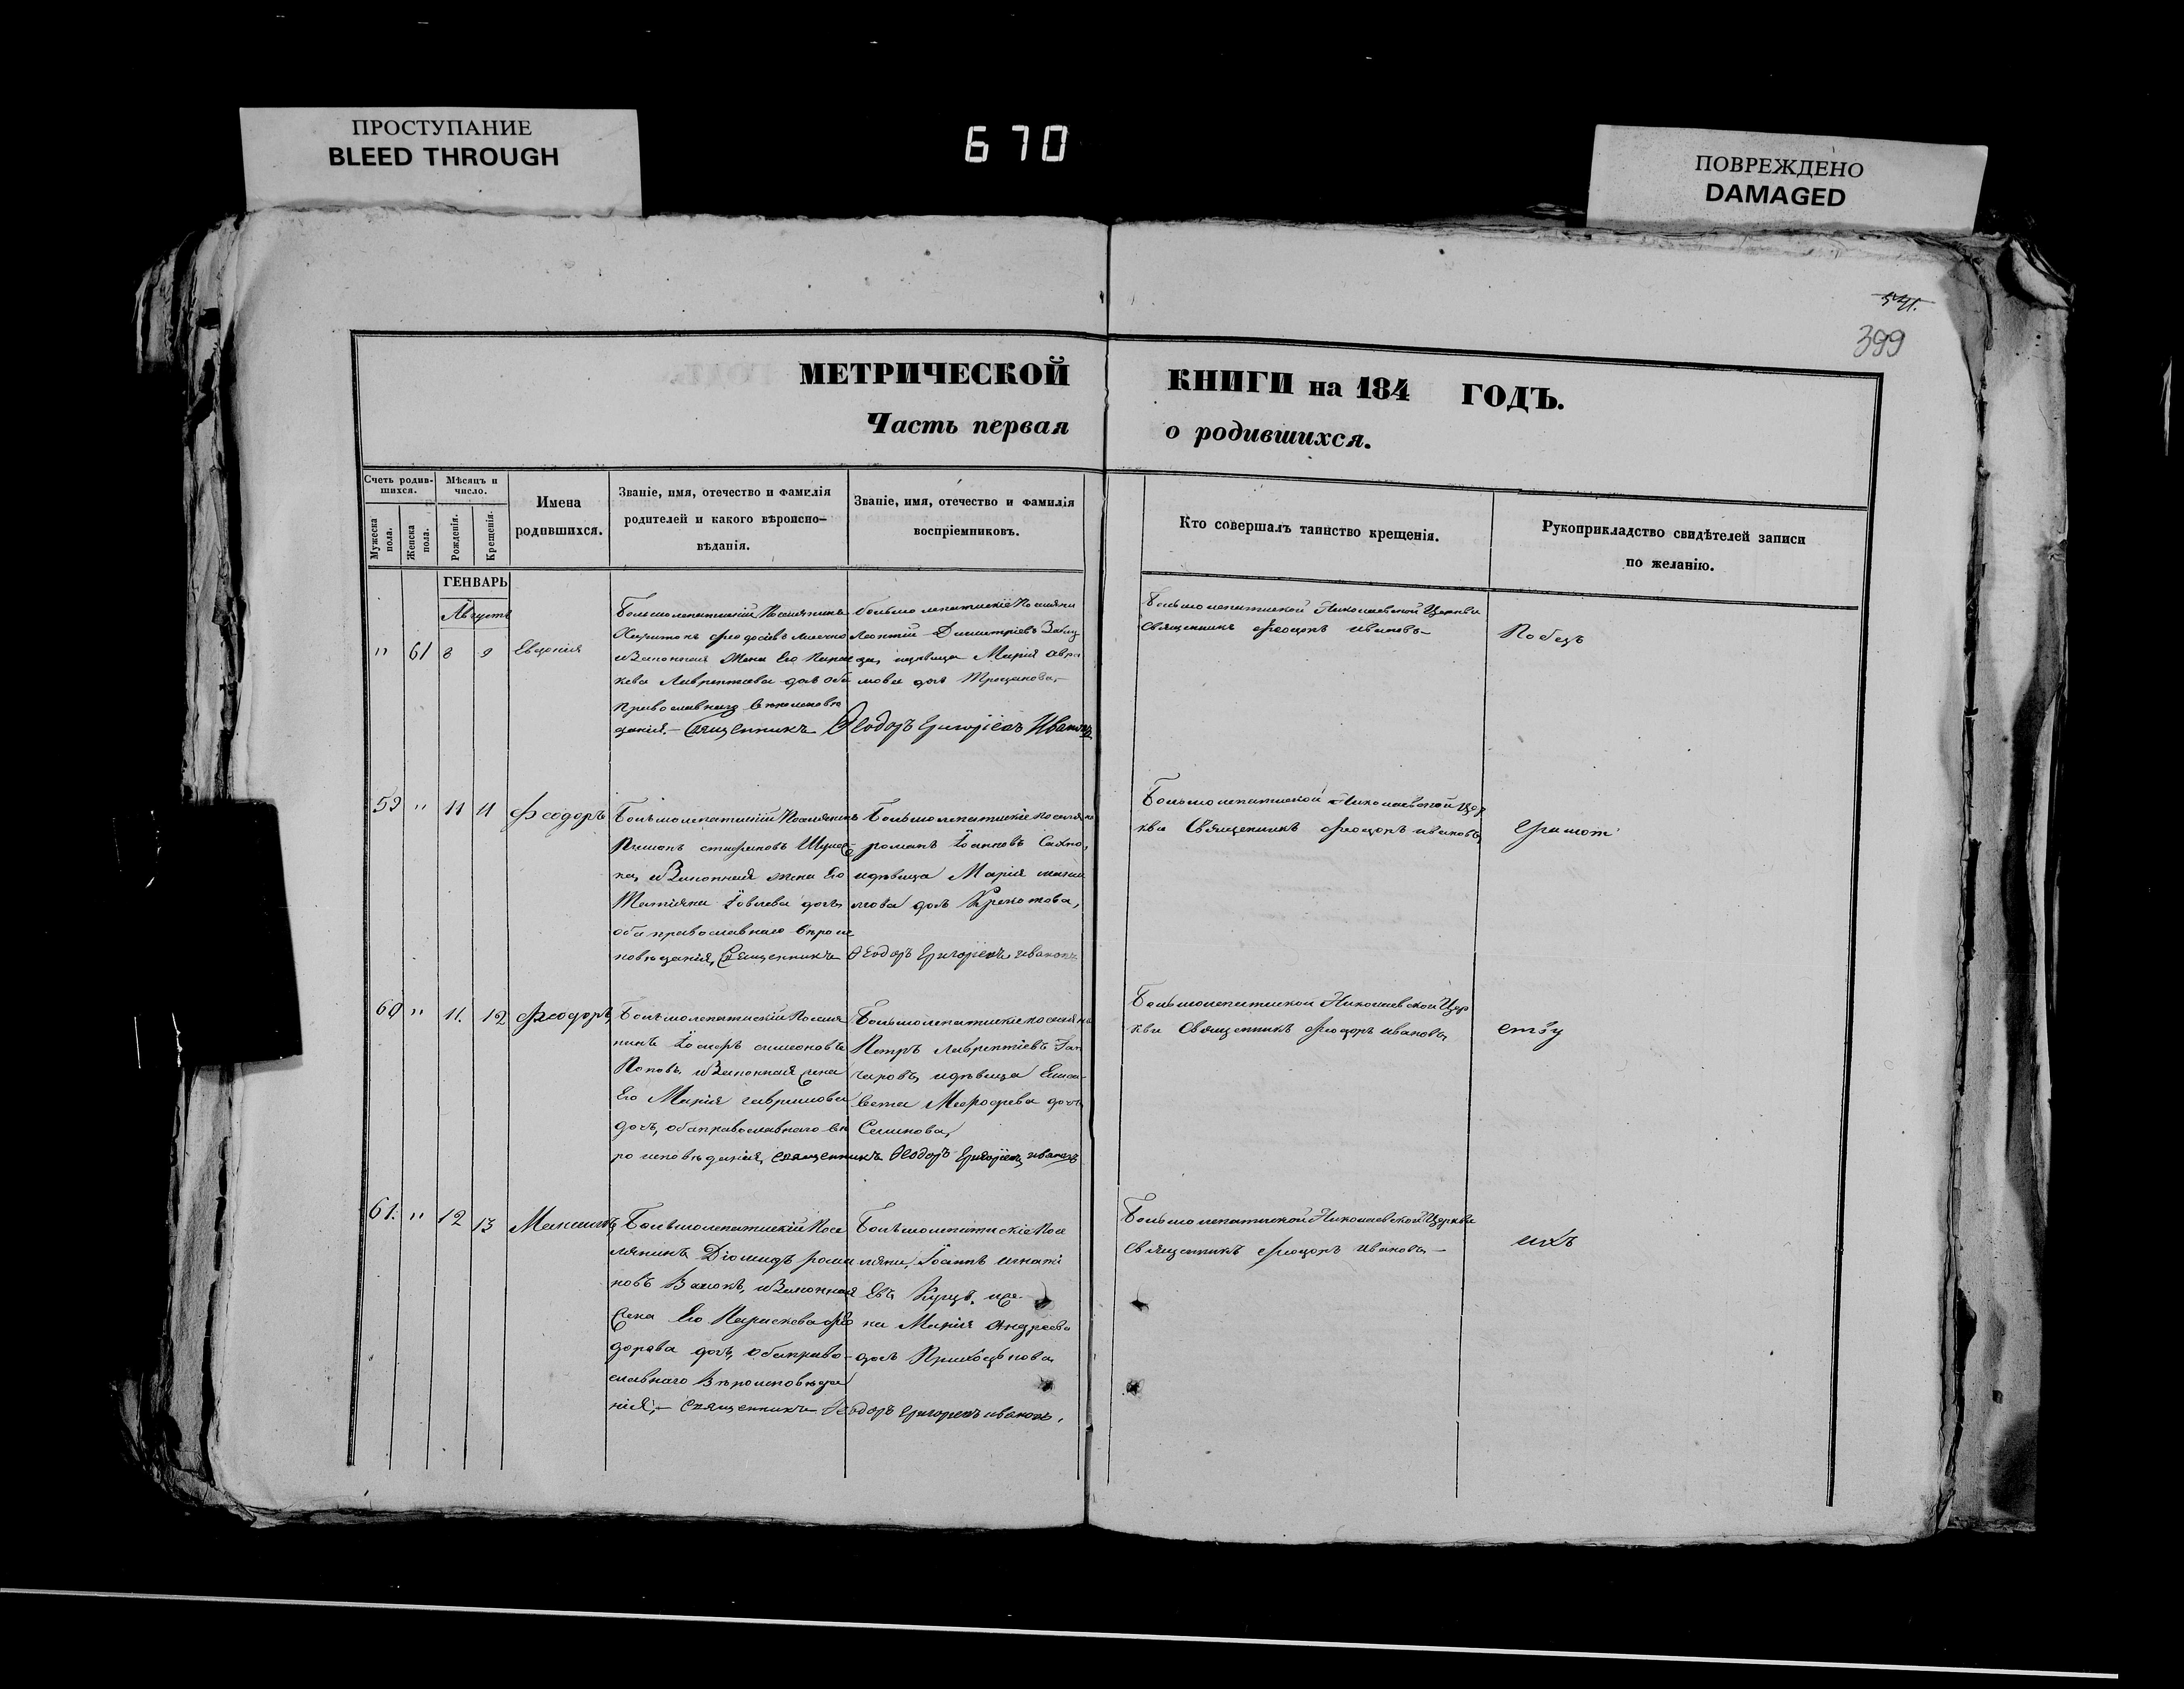 ПРОСТУПАНИЕ
BLEED THROUGH
670
ПОВРЕЖДЕНО
DAMAGED
399
МЕТРИЧЕСКОЙ КНИГИ на 184 ГОДЪ.
Часть первая о родившихся.
Счетъ родив-
шихся.
Мужеска
пола.
Женска
пола.
Мѣсяцъ и
число.
Рожденія.
Крещенія.
Имена
родившихся.
Званіе, имя, отечество и фамилія
родителей и какого вѣроиспо-
вѣданія.
Званіе, имя, отечество и фамилія
воспріемниковъ.
Кто совершалъ таинство крещенія.
Рукоприкладство свидѣтелей записи
по желанію.
ГЕНВАРЬ
Августъ
" 61 8 9 Евдокія
Большолепатискій Поселянинъ
Харитонъ Феодосіевъ
и Законная жена Его Парас
кева Лаврентіева дочь оба
Православнаго Вѣроисповѣ
данія. — Священникъ Ѳеодоръ Григоріевъ Ивановъ
Большолепатискіе Поселяни
Леонтій Димитріевъ
дѣвица Марія Авра
мова дочь
Большолепатиской Николаевской Церкви
Священникъ Феодоръ Ивановъ —
Побезъ
59 " 11 11 Феодоръ
Большолепатискій Поселянинъ
Стефановъ
и Законная жена Его
Татіяна Іовлева дочь
оба православнаго вѣроис
повѣданія, Священникъ Ѳеодоръ Григоріевъ Ивановъ
Большолепатискіе поселяни
романъ Іоанновъ
идѣвица Марія
дочь
Большолепатиской Николаевской Цер
кви Священникъ Феодоръ Ивановъ
Грамот
60 " 11. 12 Феодоръ
Большолепатискій Поселя
нинъ Іосифъ Симеоновъ
Поповъ, и Законная жена
Его Марія Гаврилова
дочь, оба православнаго вѣ
роисповѣданія, Священникъ Ѳеодоръ Григоріевъ Ивановъ
Большолепатискіе поселяни
Петръ Лаврентіевъ Гон
чаровъ, идѣвица Елиса
вета Меѳодіева дочь
Селинова,
Большолепатиской Николаевской Цер
кви Священникъ Феодоръ Ивановъ
ству
61. " 12 13 Максимъ
Большолепатискій Посе
лянинъ Діомидъ рома
новъ и Законная
жена Его Параскева Фео
дорова дочь, оба право-
славнаго Вѣроисповѣда
нія, — Священникъ Ѳеодоръ Григоріевъ Ивановъ.
Большолепатискіе Посе
ляни, Іоаннъ Игнаті
евъ
Марія Андреева
дочь Приходькова
Большолепатиской Николаевской Церкви
Священникъ Феодоръ Ивановъ —
ихъ